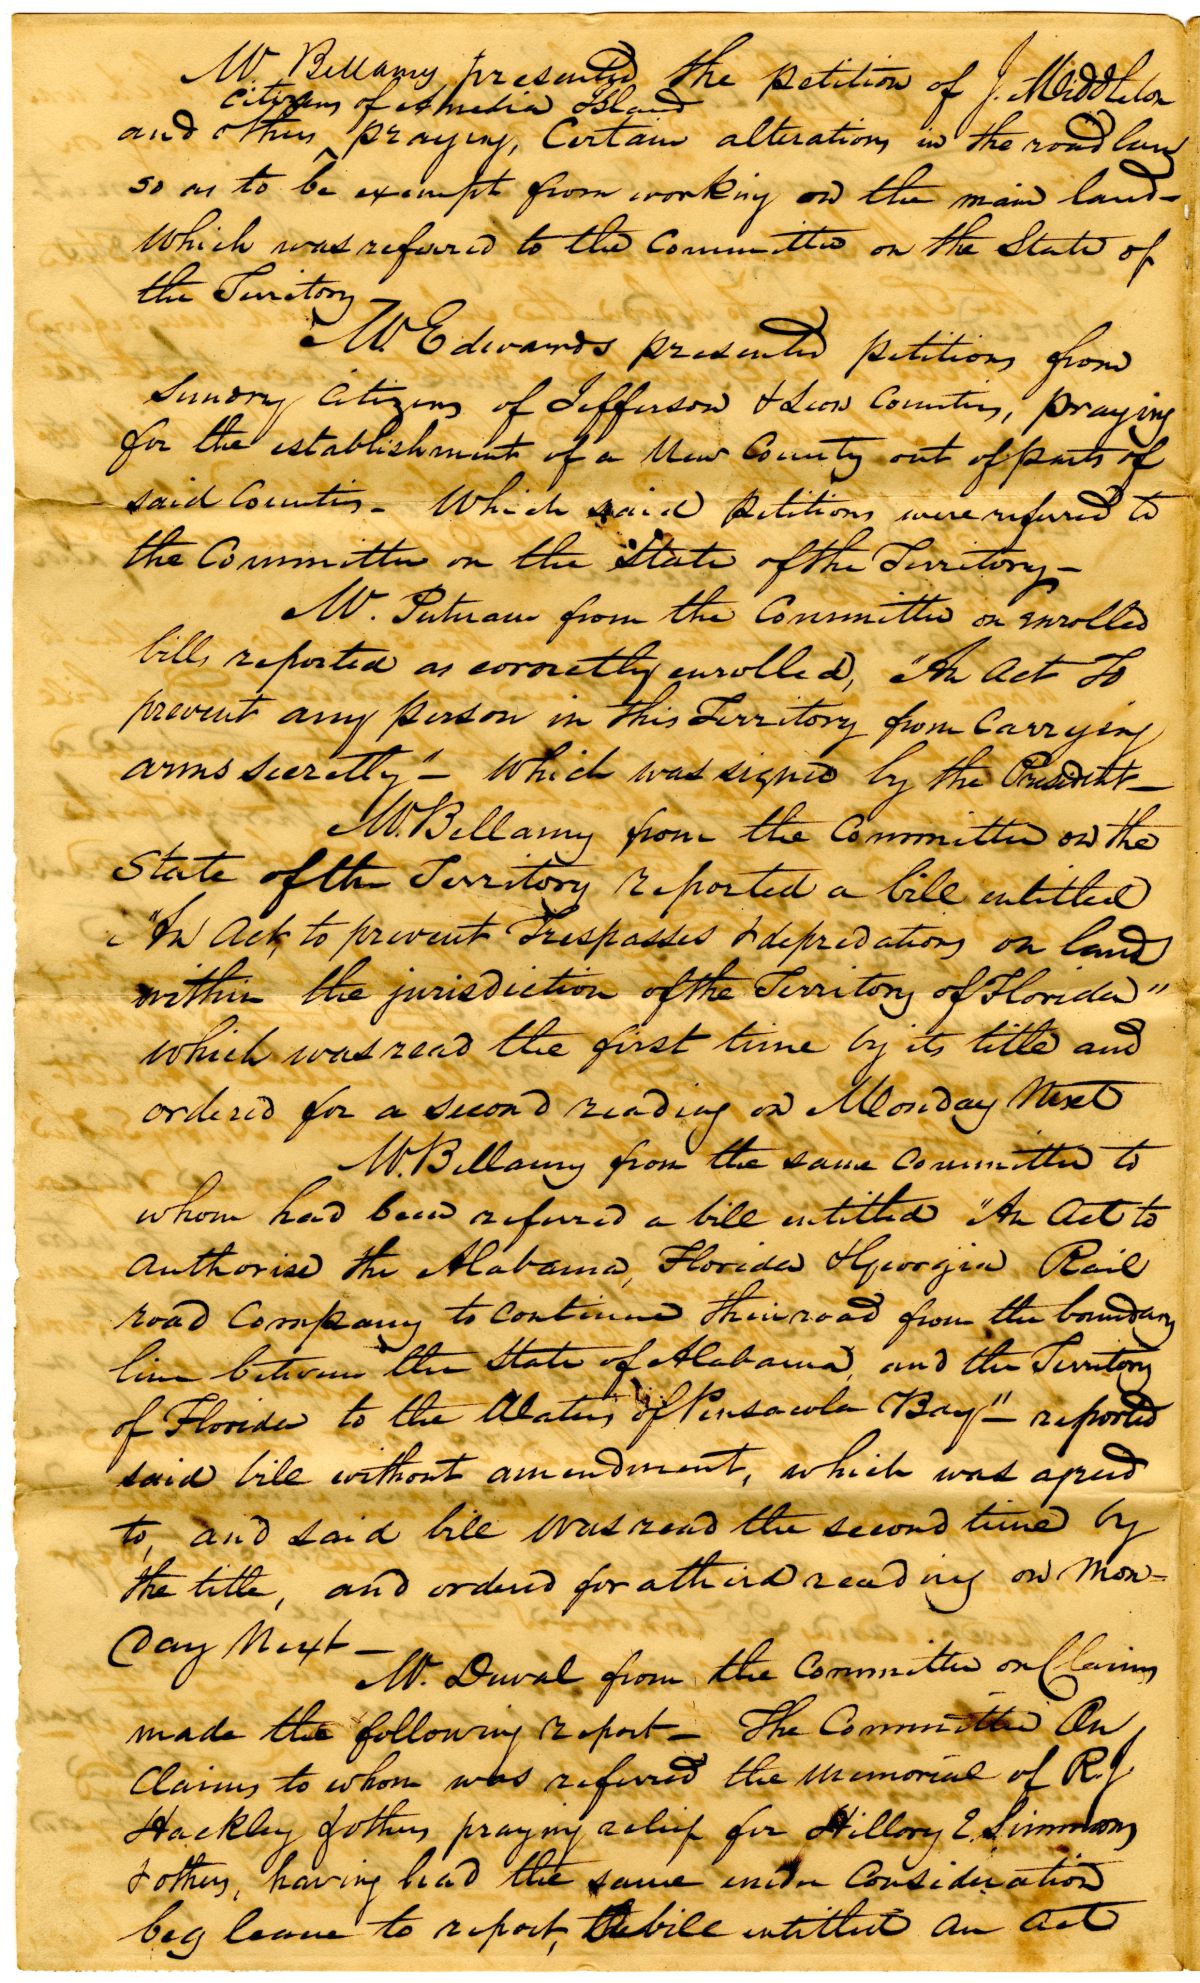 Mr. Bellamy presented the petition of J. Middleton
citizens of Amelia Island
and others praying, Certain alterations in the road laws
so as to be exempt from working on the main land-
Which was referred to the Committee on the State of
the Territory-
Mr Edwards presented petitions from
Sundry Citizens of Jefferson & Leon Counties, praying
for the establishment of a New County out of parts of
said Counties- Which said petitions were referred to
the Committee on the State of the Territory-
Mr. Putnam from the Committee on enrolled
bills reported as correctly enrolled, "An Act To
prevent any person in this Territory from Carrying
arms secretly"- Which was signed by the President-
Mr. Bellamy from the Committee on the
State of the Territory reported a bill entitled
"An Act, to prevent Trespasses & depredations on lands
within the jurisdiction of the Territory of Florida"
which was read the first time by its title and
ordered for a second reading on Monday Next
Mr. Bellamy from the same Committee to
whom had been referred a bill entitled "An Act to
Authorise the Alabama, Florida & Georgia Rail
road Company to continue their road from the boundary
line between the State of Alabama, and the Territory
of Florida to the Waters of Pensacola Bay"- reported
said bill without amendment, which was agreed
to, and said bill was read the second time by
the title, and ordered for a third reading on Mon-
day Next-
Mr. Duval from the Committee on Claims
made the following report- The Committee On
Claims to whom was referred the Memorial of R. J
Hackley & others praying relief for Hillory E. Simmons
& others, having had the same under Consideration
beg leave to report, the bill entitled An Act